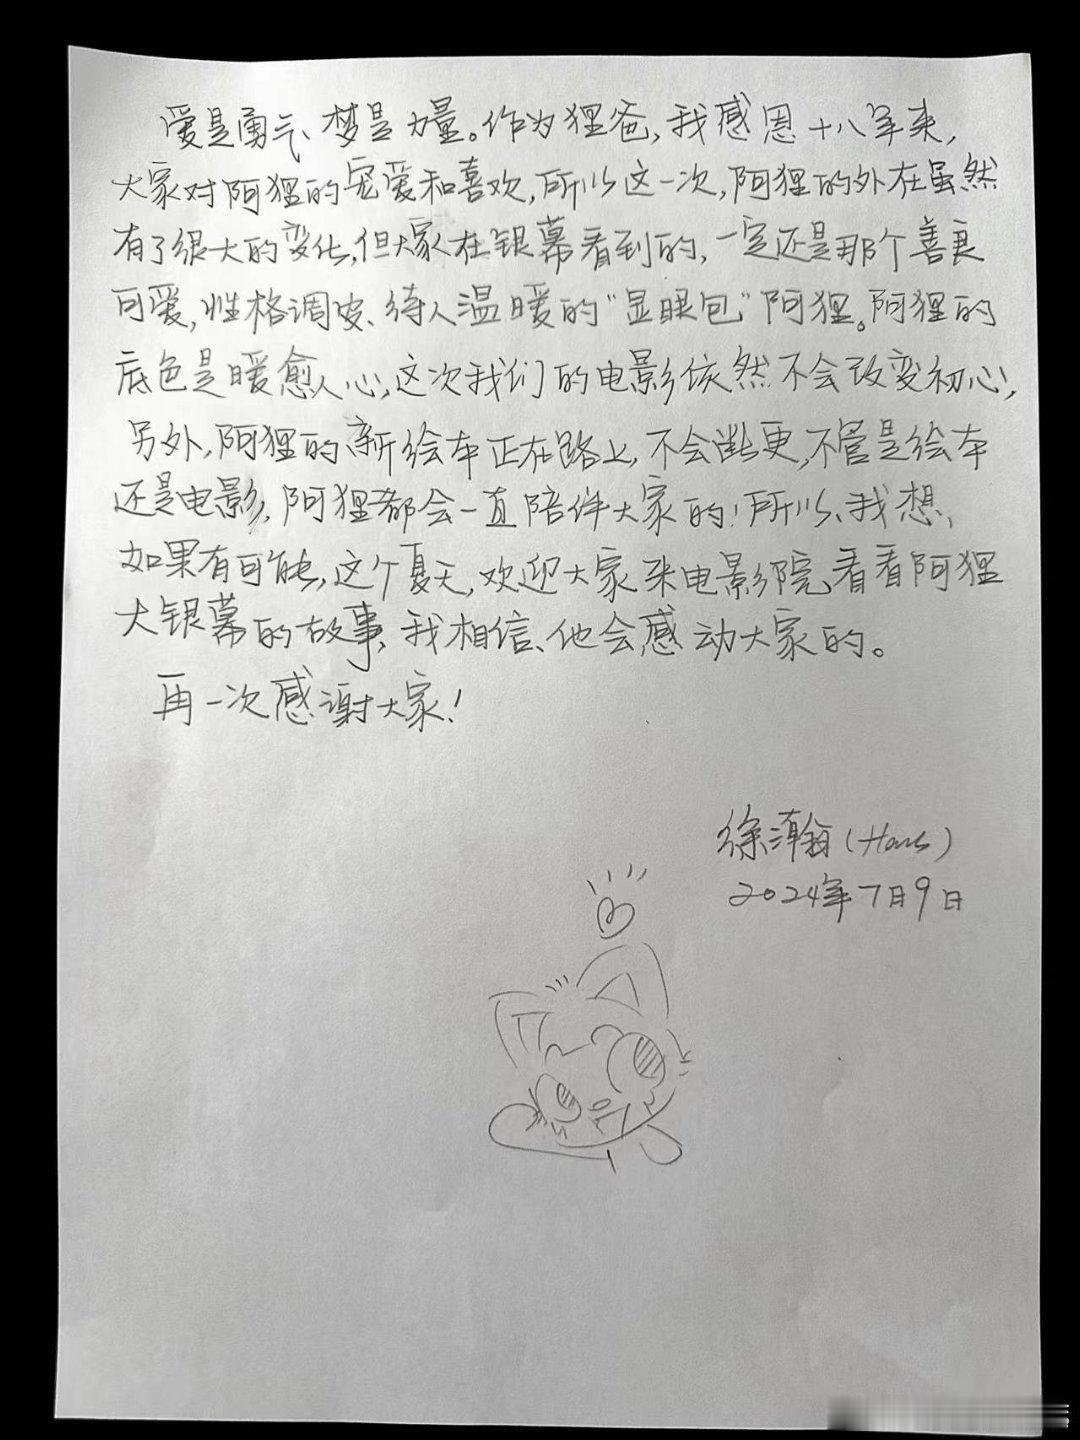 爱是勇气、梦是力量。作为狸爸,我感恩十八年来,
大家对阿狸的宠爱和喜欢,所以这一次,阿狸的外在虽然
有了很大的变化,但大家在银幕看到的,一定还是那个善良
可爱,性格调皮、待人温暖的“显眼包”阿狸。阿狸的
底色是暖愈人心,这次我们的电影依然不会改变初心,
另外,阿狸的新绘本正在路上,不会断更,不管是绘本
还是电影,阿狸都会一直陪伴大家的!所以、我想,
如果有可能,这个夏天,欢迎大家来电影院看看阿狸
大银幕的故事,我相信、他会感动大家的。
再一次感谢大家!
徐瀚(Hans)
2024年7月9日